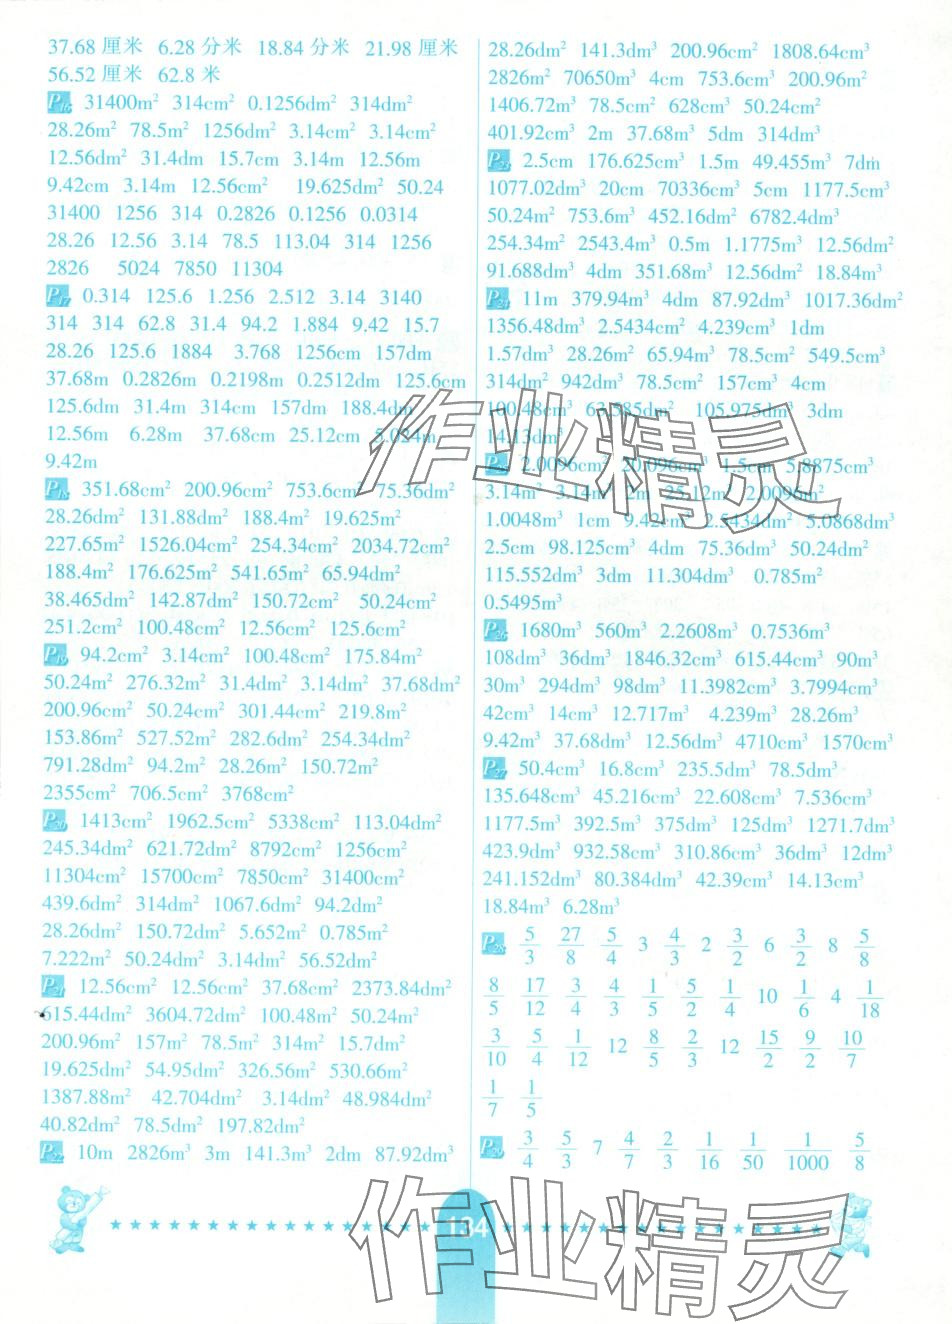 37.68 厘米 6.28 分米 18.84 分米 21.98 厘米
56.52 厘米 62.8 米
P16 31400m² 314cm² 0.1256dm² 314dm²
28.26m² 78.5m² 1256dm² 3.14cm² 3.14cm²
12.56dm² 31.4dm 15.7cm 3.14m 12.56m
9.42cm 3.14m 12.56cm² 19.625dm² 50.24
31400 1256 314 0.2826 0.1256 0.0314
28.26 12.56 3.14 78.5 113.04 314 1256
2826 5024 7850 11304
P17 0.314 125.6 1.256 2.512 3.14 3140
314 314 62.8 31.4 94.2 1.884 9.42 15.7
28.26 125.6 1884 3.768 1256cm 157dm
37.68m 0.2826m 0.2198m 0.2512dm 125.6cm
125.6dm 31.4m 314cm 157dm 188.4dm
12.56m 6.28m 37.68cm 25.12cm 5.024m
9.42m
P18 351.68cm² 200.96cm² 753.6cm² 75.36dm²
28.26dm² 131.88dm² 188.4m² 19.625m²
227.65m² 1526.04cm² 254.34cm² 2034.72cm²
188.4m² 176.625m² 541.65m² 65.94dm²
38.465dm² 142.87dm² 150.72cm² 50.24cm²
251.2cm² 100.48cm² 12.56cm² 125.6cm²
P19 94.2cm² 3.14cm² 100.48cm² 175.84m²
50.24m² 276.32m² 31.4dm² 3.14dm² 37.68dm²
200.96cm² 50.24cm² 301.44cm² 219.8m²
153.86m² 527.52m² 282.6dm² 254.34dm²
791.28dm² 94.2m² 28.26m² 150.72m²
2355cm² 706.5cm² 3768cm²
P20 1413cm² 1962.5cm² 5338cm² 113.04dm²
245.34dm² 621.72dm² 8792cm² 1256cm²
11304cm² 15700cm² 7850cm² 31400cm²
439.6dm² 314dm² 1067.6dm² 94.2dm²
28.26dm² 150.72dm² 5.652m² 0.785m²
7.222m² 50.24dm² 3.14dm² 56.52dm²
P21 12.56cm² 12.56cm² 37.68cm² 2373.84dm²
615.44dm² 3604.72dm² 100.48m² 50.24m²
200.96m² 157m² 78.5m² 314m² 15.7dm²
19.625dm² 54.95dm² 326.56m² 530.66m²
1387.88m² 42.704dm² 3.14dm² 48.984dm²
40.82dm² 78.5dm² 197.82dm²
P22 10m 2826m³ 3m 141.3m³ 2dm 87.92dm³
28.26dm² 141.3dm³ 200.96cm² 1808.64cm³
2826m² 70650m³ 4cm 753.6cm³ 200.96m²
1406.72m³ 78.5cm² 628cm³ 50.24cm²
401.92cm³ 2m 37.68m³ 5dm 314dm³
P23 2.5cm 176.625cm³ 1.5m 49.455m³ 7dm
1077.02dm³ 20cm 70336cm³ 5cm 1177.5cm³
50.24m² 753.6m³ 452.16dm² 6782.4dm³
254.34m² 2543.4m³ 0.5m 1.1775m³ 12.56dm²
91.688dm³ 4dm 351.68m³ 12.56dm² 18.84m³
P24 11m 379.94m³ 4dm 87.92dm³ 1017.36dm²
1356.48dm³ 2.5434cm² 4.239cm³ 1dm
1.57dm³ 28.26m² 65.94m³ 78.5cm² 549.5cm³
314dm² 942dm³ 78.5cm² 157cm³ 4cm
100.48cm³ 63.585dm² 105.975dm³ 3dm
14.13dm³
P25 2.0096cm³ 20.096cm³ 1.5cm 5.8875cm³
3.14m³ 3.14m² 2m 25.12m³ 2.0096m²
1.0048m³ 1cm 9.42cm³ 2.5434dm² 5.0868dm³
2.5cm 98.125cm³ 4dm 75.36dm³ 50.24dm²
115.552dm³ 3dm 11.304dm³ 0.785m²
0.5495m³
P26 1680m³ 560m³ 2.2608m³ 0.7536m³
108dm³ 36dm³ 1846.32cm³ 615.44cm³ 90m³
30m³ 294dm³ 98dm³ 11.3982cm³ 3.7994cm³
42cm³ 14cm³ 12.717m³ 4.239m³ 28.26m³
9.42m³ 37.68dm³ 12.56dm³ 4710cm³ 1570cm³
P27 50.4cm³ 16.8cm³ 235.5dm³ 78.5dm³
135.648cm³ 45.216cm³ 22.608cm³ 7.536cm³
1177.5m³ 392.5m³ 375dm³ 125dm³ 1271.7dm³
423.9dm³ 932.58cm³ 310.86cm³ 36dm³ 12dm³
241.152dm³ 80.384dm³ 42.39cm³ 14.13cm³
18.84m³ 6.28m³
P28 5/3 27/8 5/4 3 4/3 2 3/2 6 3/2 8 5/8
8/5 17/12 3/4 4/3 1/5 5/2 1/4 10 1/6 4 1/18
3/10 5/4 1/12 12 8/5 2/3 12 15/2 9/2 10/7
1/7 1/5
P29 3/4 5/3 7 4/7 2/3 1/16 1/50 1/1000 5/8
134
作业精灵
作业精灵